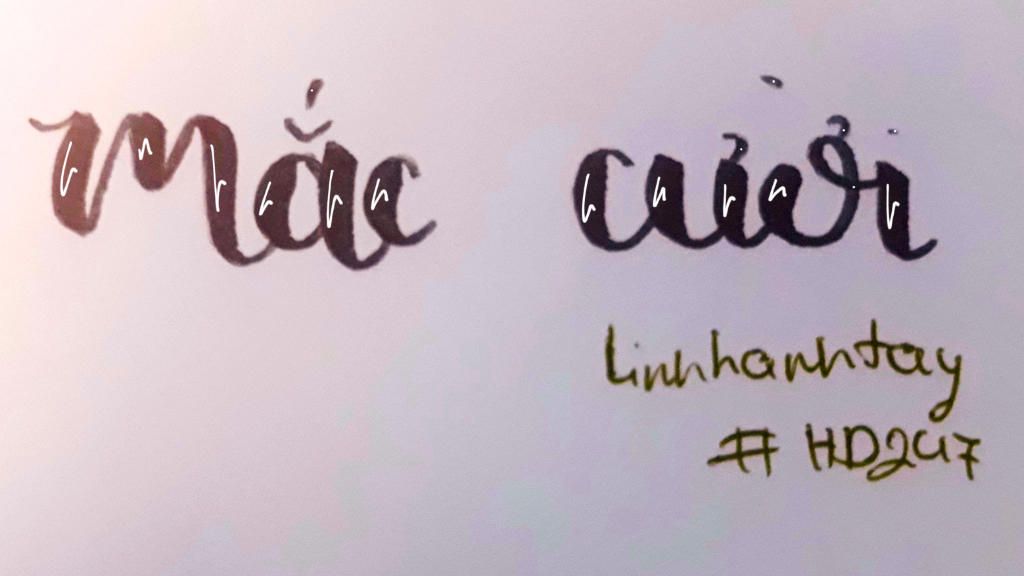 Mắc cười
linhhanhtay
# HD247